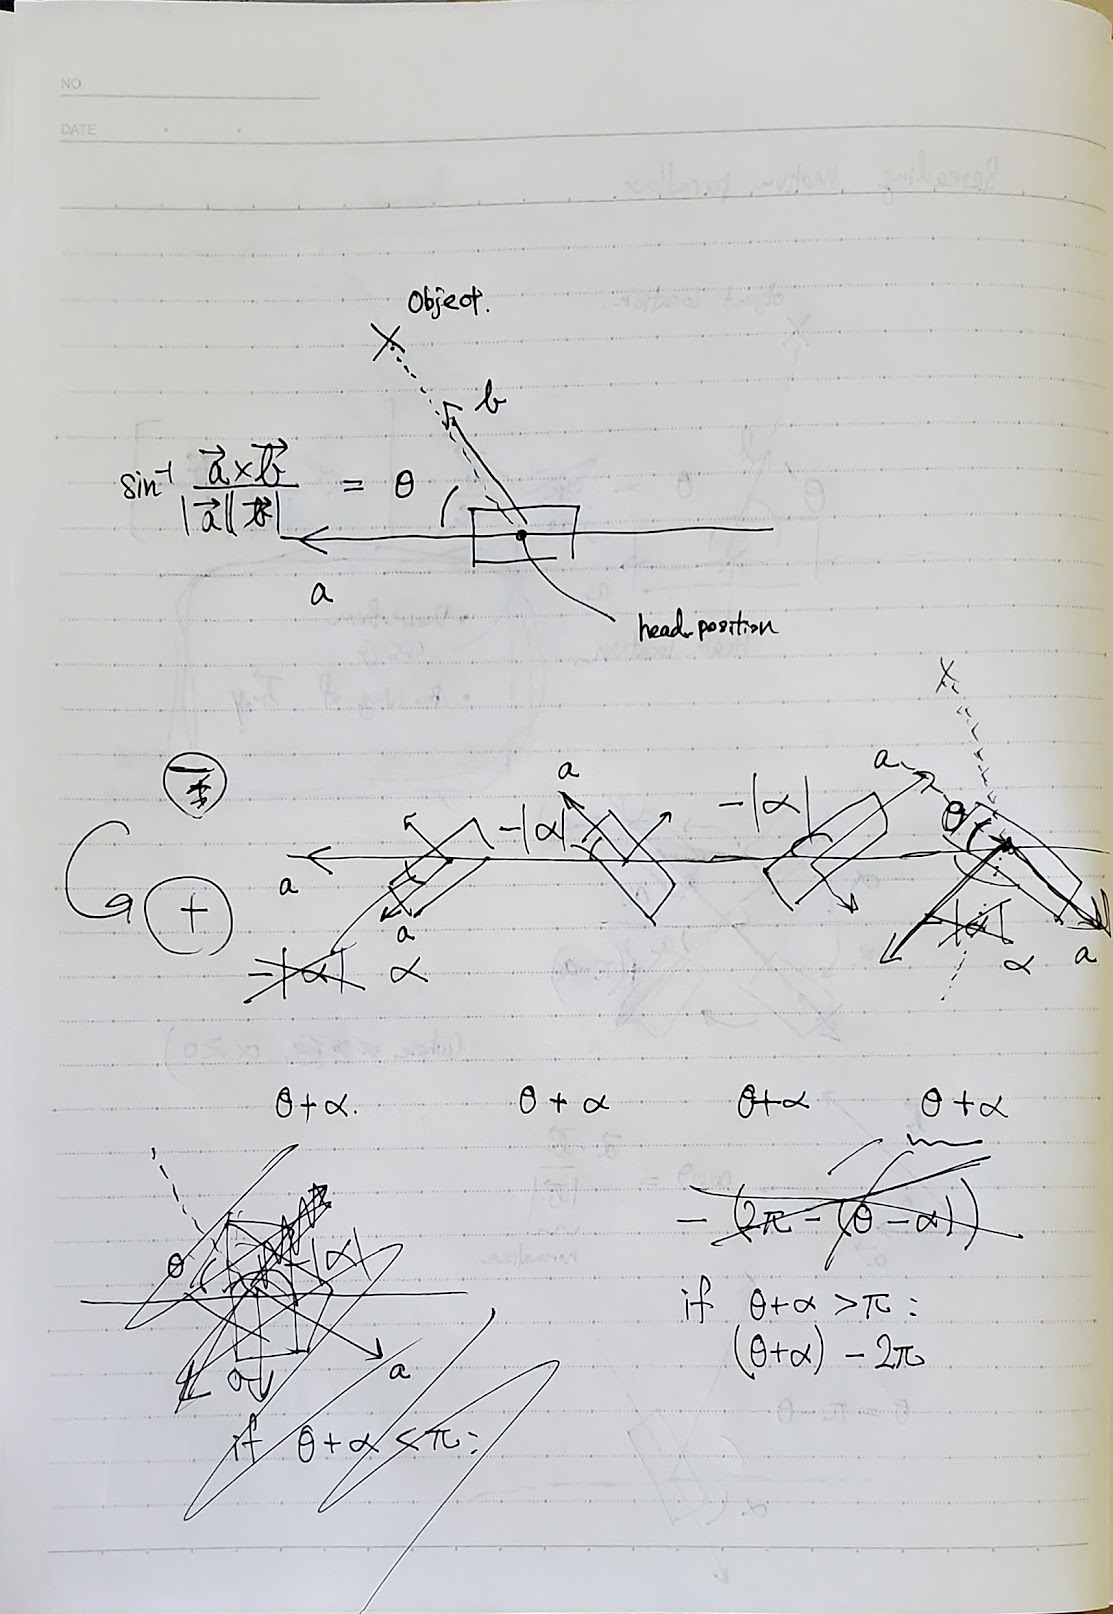 NO
DATE
object.
b
sin⁻¹ a⃗×b⃗ / |a⃗||b⃗| = θ
a
head position
a
-|α|
a
-|α|
a
θ
a
+
-|α| α
-|α|
α
a
θ+α.
θ+α
θ+α
θ+α
-(2π-(θ-α))
θ
-|α|
if θ+α>π:
(θ+α)-2π
a
if θ+α<π: